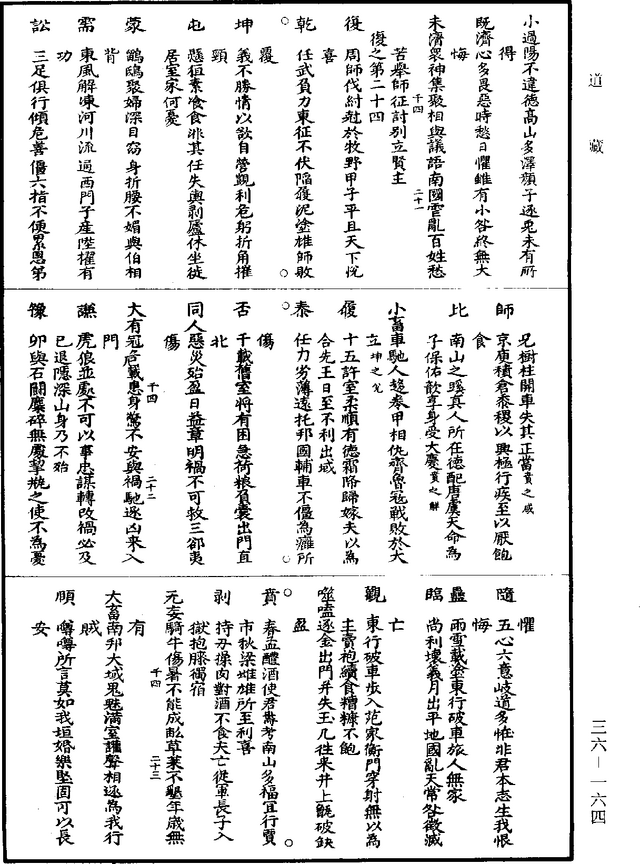 道藏
小過陽不違德高山多澤顏子逐兎未有所
得
既濟心多畏惡時愁日懼雖有小咎終無大
悔
未濟衆神集聚相與議語南國雲亂百姓愁
苦舉師征討別立賢主
千四
二十一
復之第二十四
復 周師伐紂尅於牧野甲子平旦天下悅
喜
乾 任武負力東征不伏陷蹈泥塗雄師敗
覆
坤 義不勝情以欲自營覬利危躬折角摧
頸
屯 懸狟素飡食非其任失輿剥廬休坐徙
居室家何憂
蒙 鵠鴟娶婦深目窈身折腰不媚與伯相
背
需 東風解凍河川流通西門子產陞擢有
功
訟 三足俱行傾危善僵六指不便累恩弟
兄樹柱開車失其正當賁之咸
師 京庾積倉黍稷以興極行疾至以厭飽
食
比 南山之蹊真人所在德配唐虞天命爲
子保佑歆享身受大慶賁之解
小畜車馳人趍卷甲相仇齊魯寇戰敗於犬
丘坤之兊
履 十五許室柔順有德霜降歸嫁夫以爲
合先王日至不利出域
泰 任力劣薄遠托邦國輔車不僵爲癰所
傷
否 千載舊室將有困急荷粮負囊出門直
北
同人惡災殆盈日益章明禍不可救三郤夷
傷
千四
二十二
大有冠危戴患身驚不安與禍馳逐凶來入
門
謙 虎狼並處不可以事忠謀轉改禍必及
己退隱深山身乃不殆
豫 卵與石鬭麋碎無處挈瓶之使不爲憂
懼
隨 五心六意岐道多恠非君本志生我恨
悔
蠱 雨雪載塗東行破車旅人無家
臨 尚利壞義月出平地國亂天常咎徵滅
亡
觀 東行破車步入范家衡門穿射無以爲
主賣袍續食糟糠不飽
噬嗑逐金出門并失玉丸往來井上甑破缺
盈
賁 春孟醴酒使君壽考南山多福宜行賈
市秋梁雌雄所至利喜
剥 持刃操肉對酒不食夫亡從軍長子入
獄抱膝獨宿
无妄騎牛傷暑不能成畝草萊不墾年歲無
有
千四
二十三
大畜南邦大域鬼魅滿室讙聲相逐爲我行
賊
頤 噂噂所言莫如我垣婚樂堅固可以長
安
三六—一六四